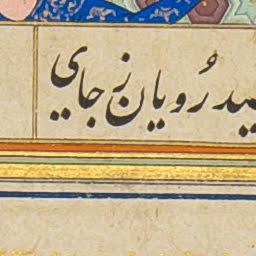 رُویان ز جای